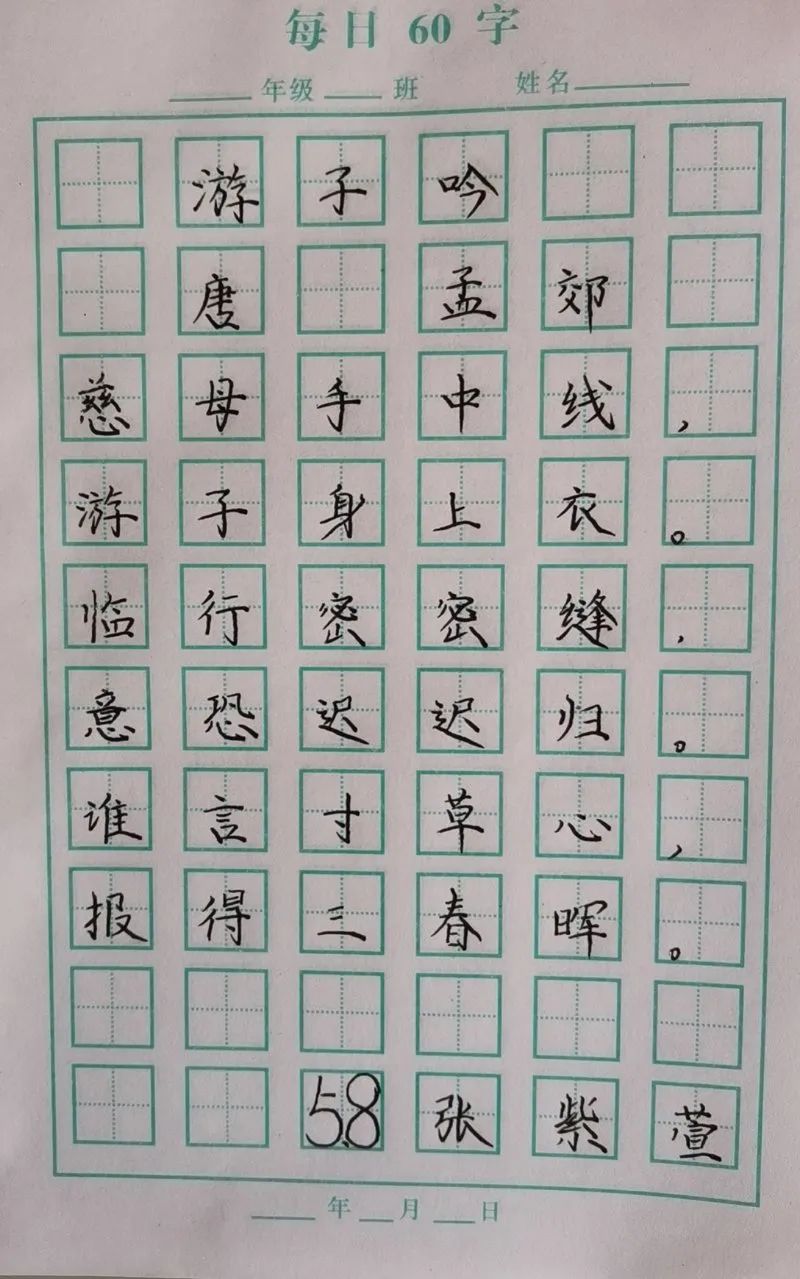 每日 60 字
____年级____班 姓名________
游子吟
唐 孟郊
慈母手中线，
游子身上衣。
临行密密缝，
意恐迟迟归。
谁言寸草心，
报得三春晖。
5.8张紫萱
____年__月__日